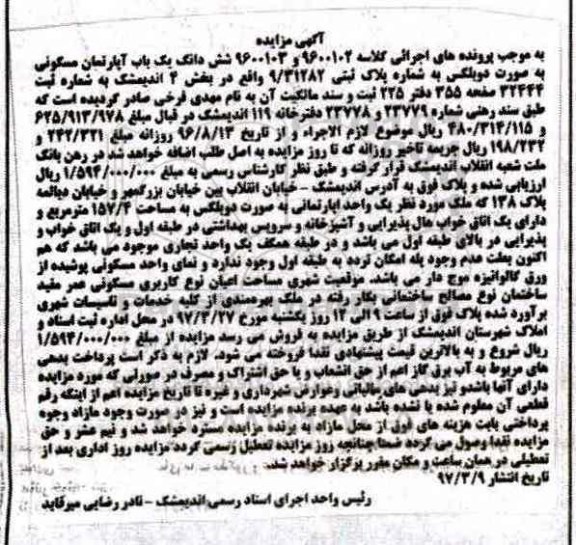 آگهی مزایده
به موجب پرونده های اجرائی کلاسه ۹۶۰۰۱۰۲ و ۹۶۰۰۱۰۳ شش دانگ یک باب آپارتمان مسکونی
به صورت دوبلکس به شماره پلاک ثبتی ۹/۳۱۲۸۲ واقع در بخش ۴ اندیمشک به شماره ثبت
۳۲۴۴۴ صفحه ۳۵۵ دفتر ۲۲۵ ثبت و سند مالکیت آن به نام مهدی فرخی صادر گردیده است که
طبق سند رهنی شماره ۲۳۷۷۹ و ۲۳۷۷۸ دفترخانه ۱۱۹ اندیمشک در قبال مبلغ ۶۲۵/۹۱۳/۹۷۸
و ۴۸۰/۳۱۴/۱۱۵ ریال موضوع لازم الاجراء و از تاریخ ۹۶/۸/۱۳ روزانه مبلغ ۲۴۲/۳۲۱ و
۱۹۸/۲۳۲ ریال جریمه تاخیر روزانه که تا روز مزایده به اصل طلب اضافه خواهد شد در رهن بانک
ملت شعبه انقلاب اندیمشک قرار گرفته و طبق نظر کارشناس رسمی به مبلغ ۱/۵۹۴/۰۰۰/۰۰۰ ریال
ارزیابی شده و پلاک فوق به آدرس اندیمشک - خیابان انقلاب بین خیابان بزرگمهر و خیابان دیالمه
پلاک ۱۳۸ که ملک مورد نظر یک واحد اپارتمانی به صورت دوبلکس به مساحت ۱۵۷/۴ مترمربع و
دارای یک اتاق خواب هال پذیرایی و آشپزخانه و سرویس بهداشتی در طبقه اول و یک اتاق خواب و
پذیرایی در بالای طبقه اول می باشد و در طبقه همکف یک واحد تجاری موجود می باشد که هم
اکنون بعلت عدم وجود پله امکان تردد به طبقه اول وجود ندارد و نمای واحد مسکونی پوشیده از
ورق گالوانیزه موج دار می باشد. موقعیت شهری مساحت اعیان نوع کاربری مسکونی عمر مفید
ساختمان نوع مصالح ساختمانی بکار رفته در ملک بهره‌مندی از کلیه خدمات و تاسیسات شهری
برآورد شده پلاک فوق از ساعت ۹ الی ۱۲ روز یکشنبه مورخ ۹۷/۳/۲۷ در محل اداره ثبت اسناد و
املاک شهرستان اندیمشک از طریق مزایده به فروش می رسد مزایده از مبلغ ۱/۵۹۴/۰۰۰/۰۰۰
ریال شروع و به بالاترین قیمت پیشنهادی نقدا فروخته می شود. لازم به ذکر است پرداخت بدهی
های مربوط به آب برق گاز اعم از حق انشعاب و یا حق اشتراک و مصرف در صورتی که مورد مزایده
دارای آنها باشدو نیز بدهی های مالیاتی وعوارض شهرداری و غیره تا تاریخ مزایده اعم از اینکه رقم
قطعی آن معلوم شده یا نشده باشد به عهده برنده مزایده است و نیز در صورت وجود مازاد وجوه
پرداختی بابت هزینه های فوق از محل مازاد به برنده مزایده مسترد خواهد شد و نیم عشر و حق
مزایده نقدا وصول می گردد ضمنا چنانچه روز مزایده تعطیل رسمی گردد مزایده روز اداری بعد از
تعطیلی در همان ساعت و مکان مقرر برگزار خواهد شد.
تاریخ انتشار ۹۷/۳/۹
رئیس واحد اجرای اسناد رسمی اندیمشک - نادر رضایی میرقاید